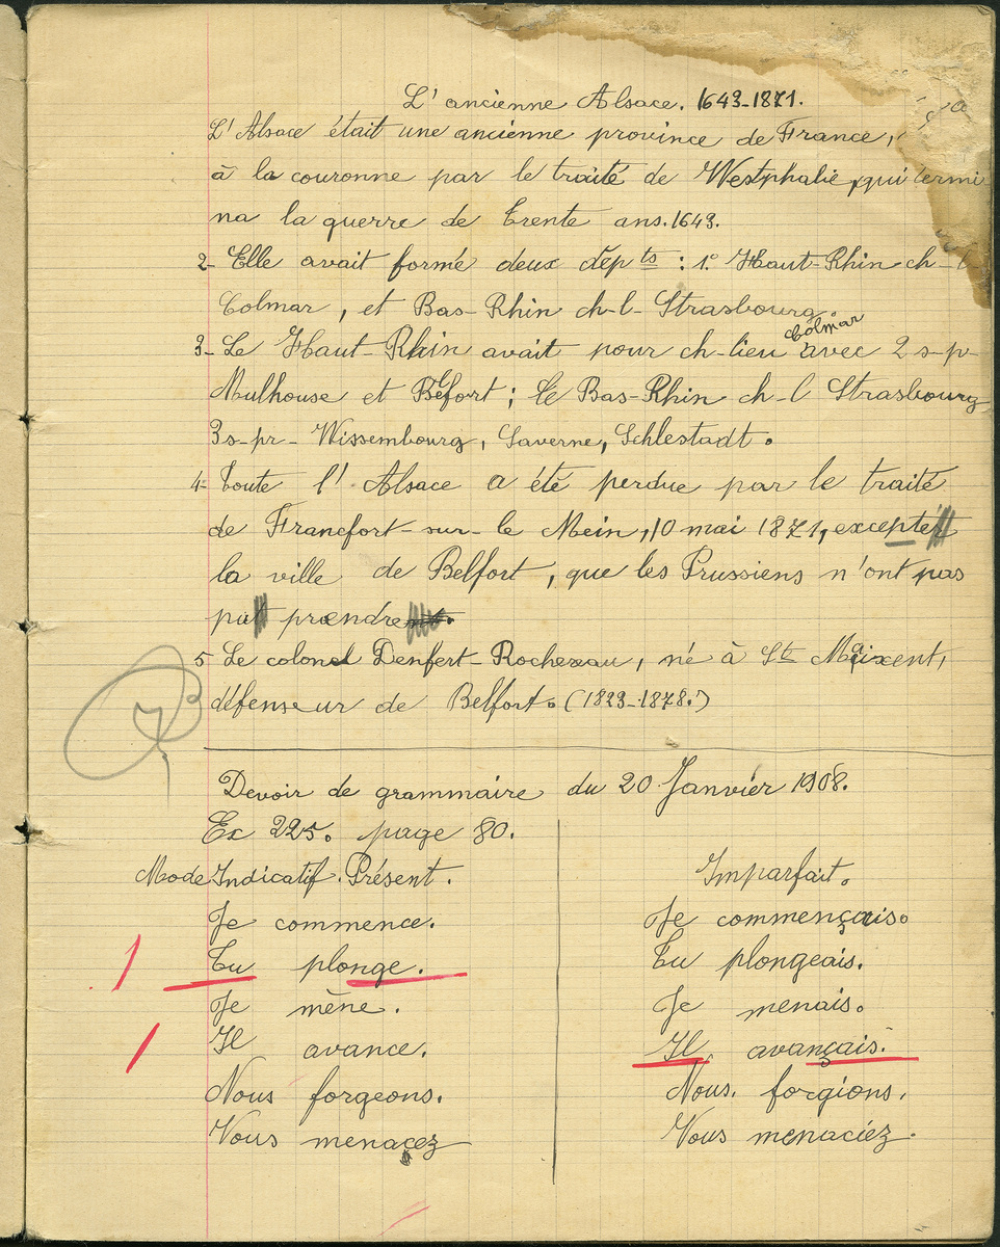 L'ancienne Alsace. 1649-1871.
L'Alsace était une ancienne province de France,
à la couronne par le traité de Westphalie, qui termi
na la guerre de trente ans. 1649.
2- Elle avait formé deux dépts : 1º Haut-Rhin ch-l-
Colmar, et Bas-Rhin ch-l- Strasbourg.
3- Le Haut-Rhin avait pour ch-lieu Colmar avec 2 s-p-
Mulhouse et Belfort ; le Bas-Rhin ch-l Strasbourg
3 s-pr- Wissembourg, Saverne, Schlestadt.
4- Toute l'Alsace a été perdue par le traité
de Francfort-sur-le Mein, 10 mai 1871, excepté
la ville de Belfort, que les Prussiens n'ont pas
pu prendre.
5 Le colonel Denfert-Rochereau, né à St Maixent,
défenseur de Belfort. (1823-1878.)
Devoir de grammaire du 20 Janvier 1908.
Ex 225. page 80.
Mode Indicatif. Présent.
Je commence.
Tu plonge.
Je mène.
Il avance.
Nous forgeons.
Vous menacez
Imparfait.
Je commençais.
Tu plongeais.
Je menais.
Il avançais.
Nous. forgions.
Vous menaciez.